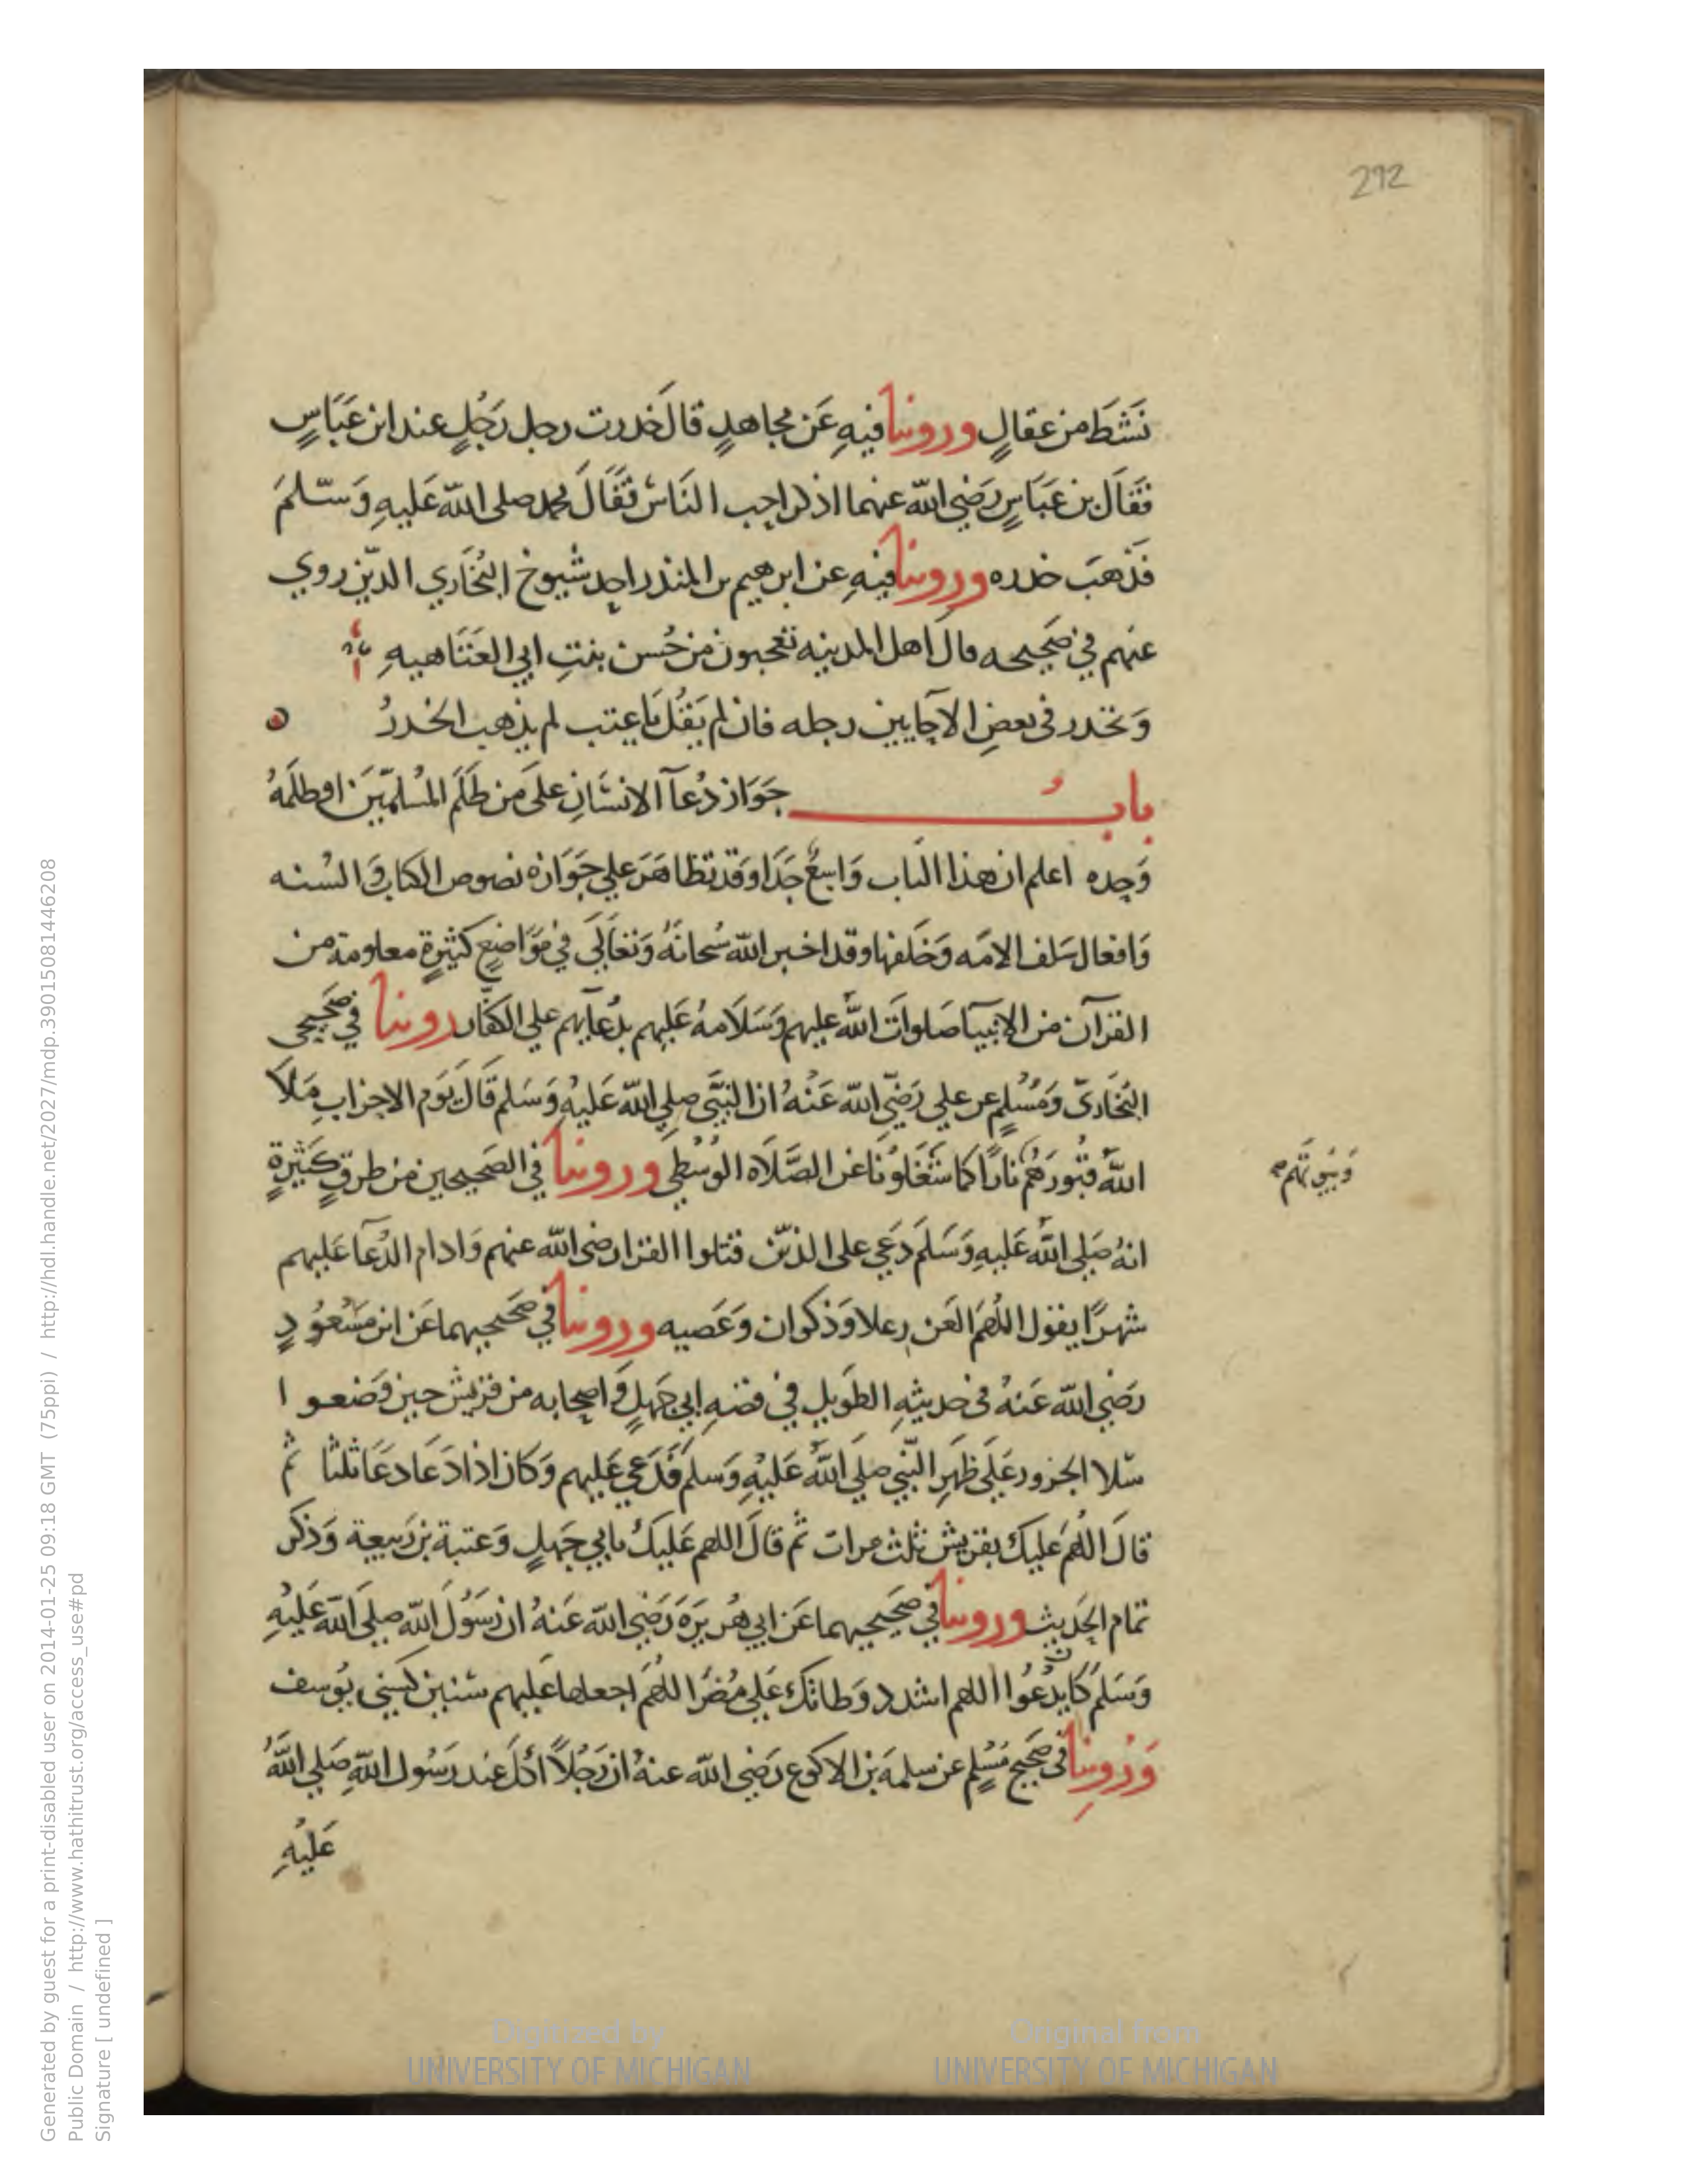 292
نَشَطَ من عقالٍ وروينا فيهِ عَن مجاهدٍ قال خَدرت رجل رَجُلٍ عند ابن عَبَاسٍ
فقَالَ بن عَبَاسٍ رَضي الله عنهما اذكر احب النَاس فقَالَ محمد صلى الله عَليهِ وَسَّلمَ
فذهَبَ خدره وروينا فيهِ عن ابرهيم بن المنذر احد شيوخ البُخَاري الدّين روي
عنهم في صَحيحه قال اهل المدينه تعجبون من حُسن بنتِ ابي العَتَاهيهِ
وَتخدر في بعضِ الاحايين رجله فان لم يَقُل يَا عتب لم يذهب الخدرُ
بابُ جَوَاز دُعآ الانسَانِ علَى مَن ظَلَمَ المُسلمّيَن او ظلَمَهُ
وَحده اعلم ان هذا الباب وَاسِعٌ جَدَا وَقد تظاهَرَ علي جَوَازه نصوص الكتاب وَالسُنه
وَافعال سَلف الامَه وَخَلفها وقد اخبر الله سُبحانَهُ وَتعَالَي في مَوَاضعٍ كثيرةٍ معلومة من
القرآن من الانبيَا صَلوات اللهُ عليهم وَسَلَامهُ عَليهم بدُعآيهم علي الكفَار روينا في صَحيحي
البُخَاريّ وَمُسْلمٍ عن علي رَضيّ الله عَنْهُ ان النبَّي صلي الله عَليهِ وَسَلم قَال يَوم الاحزاب مَلَا
اللهُ قبُورَهُم نارًا كما شغَلوُنَا عَن الصَلَاه الوُسْطي وروينا في الصَحيحين من طرقٍ كَثيرةٍ
وَبيُوتَهُم صح
انهُ صَلي اللهُ عَليهِ وَسَلَم دَعَي على الذيّن قتلوا القرا رضى الله عنهم وَادام الدُعآ عَليهم
شهرًا يقول اللهُمَ العَن رعلا وَذكوان وَعَصيه وروينا في صَحيحيهما عَن ابن مَسْعُودٍ
رَضي الله عَنهُ في حديثهِ الطَويل في قصَهِ ابي جَهلٍ وَاصحابه من قريش حين وَضعوا
سَلا الجزور عَلَي ظَهرِ النّبي صلَي اللهُ عَليْهِ وَسَلم فَدَعَي عَليهم وَكَان اذا دَعَا دعَا ثلثًا ثُم
قالَ اللهُمَ عَليكَ بقريش ثلث مرات ثُم قالَ اللهم عَليكَ بابي جَهلٍ وَعتبة بن رَبيعة وَذكر
تمام الحَديث وروينا في صَحيحيهما عَن ابي هُريَرَه رَضي الله عَنهُ ان رَسُولَ الله صلَي الله عَليْهِ
وَسَلم كَان يدْعُوا اللهم اشدد وَطاتكَ عَلي مُضَر اللهُمَ اجعلها عَليهم سنين كسَني يوُسف
وَرُوينا في صَحيح مَسْلمٍ عن سلمَة بَن الاكوع رَضي الله عنهُ ان رَجُلاً اكل عَند رَسُول اللهِ صَلي اللهُ
عَليْهِ
Digitized by
UNIVERSITY OF MICHIGAN
Original from
UNIVERSITY OF MICHIGAN
Generated by guest for a print-disabled user on 2014-01-25 09:18 GMT (75ppi) / http://hdl.handle.net/2027/mdp.39015081446208
Public Domain / http://www.hathitrust.org/access_use#pd
Signature [ undefined ]